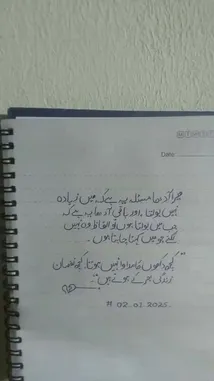 Date:
میرا آدھا مسئلہ یہ ہے کہ میں زیادہ
نہیں بولتا، اور باقی آدھا یہ ہے کہ
جب میں بولتا ہوں تو الفاظ وہ نہیں
جو میں کہنا چاہتا ہوں۔
"کچھ دکھوں کا مداوا نہیں ہوتا، کچھ نقصان
زندگی بھر کے ہوتے ہیں"۔
# 02.01.2025.